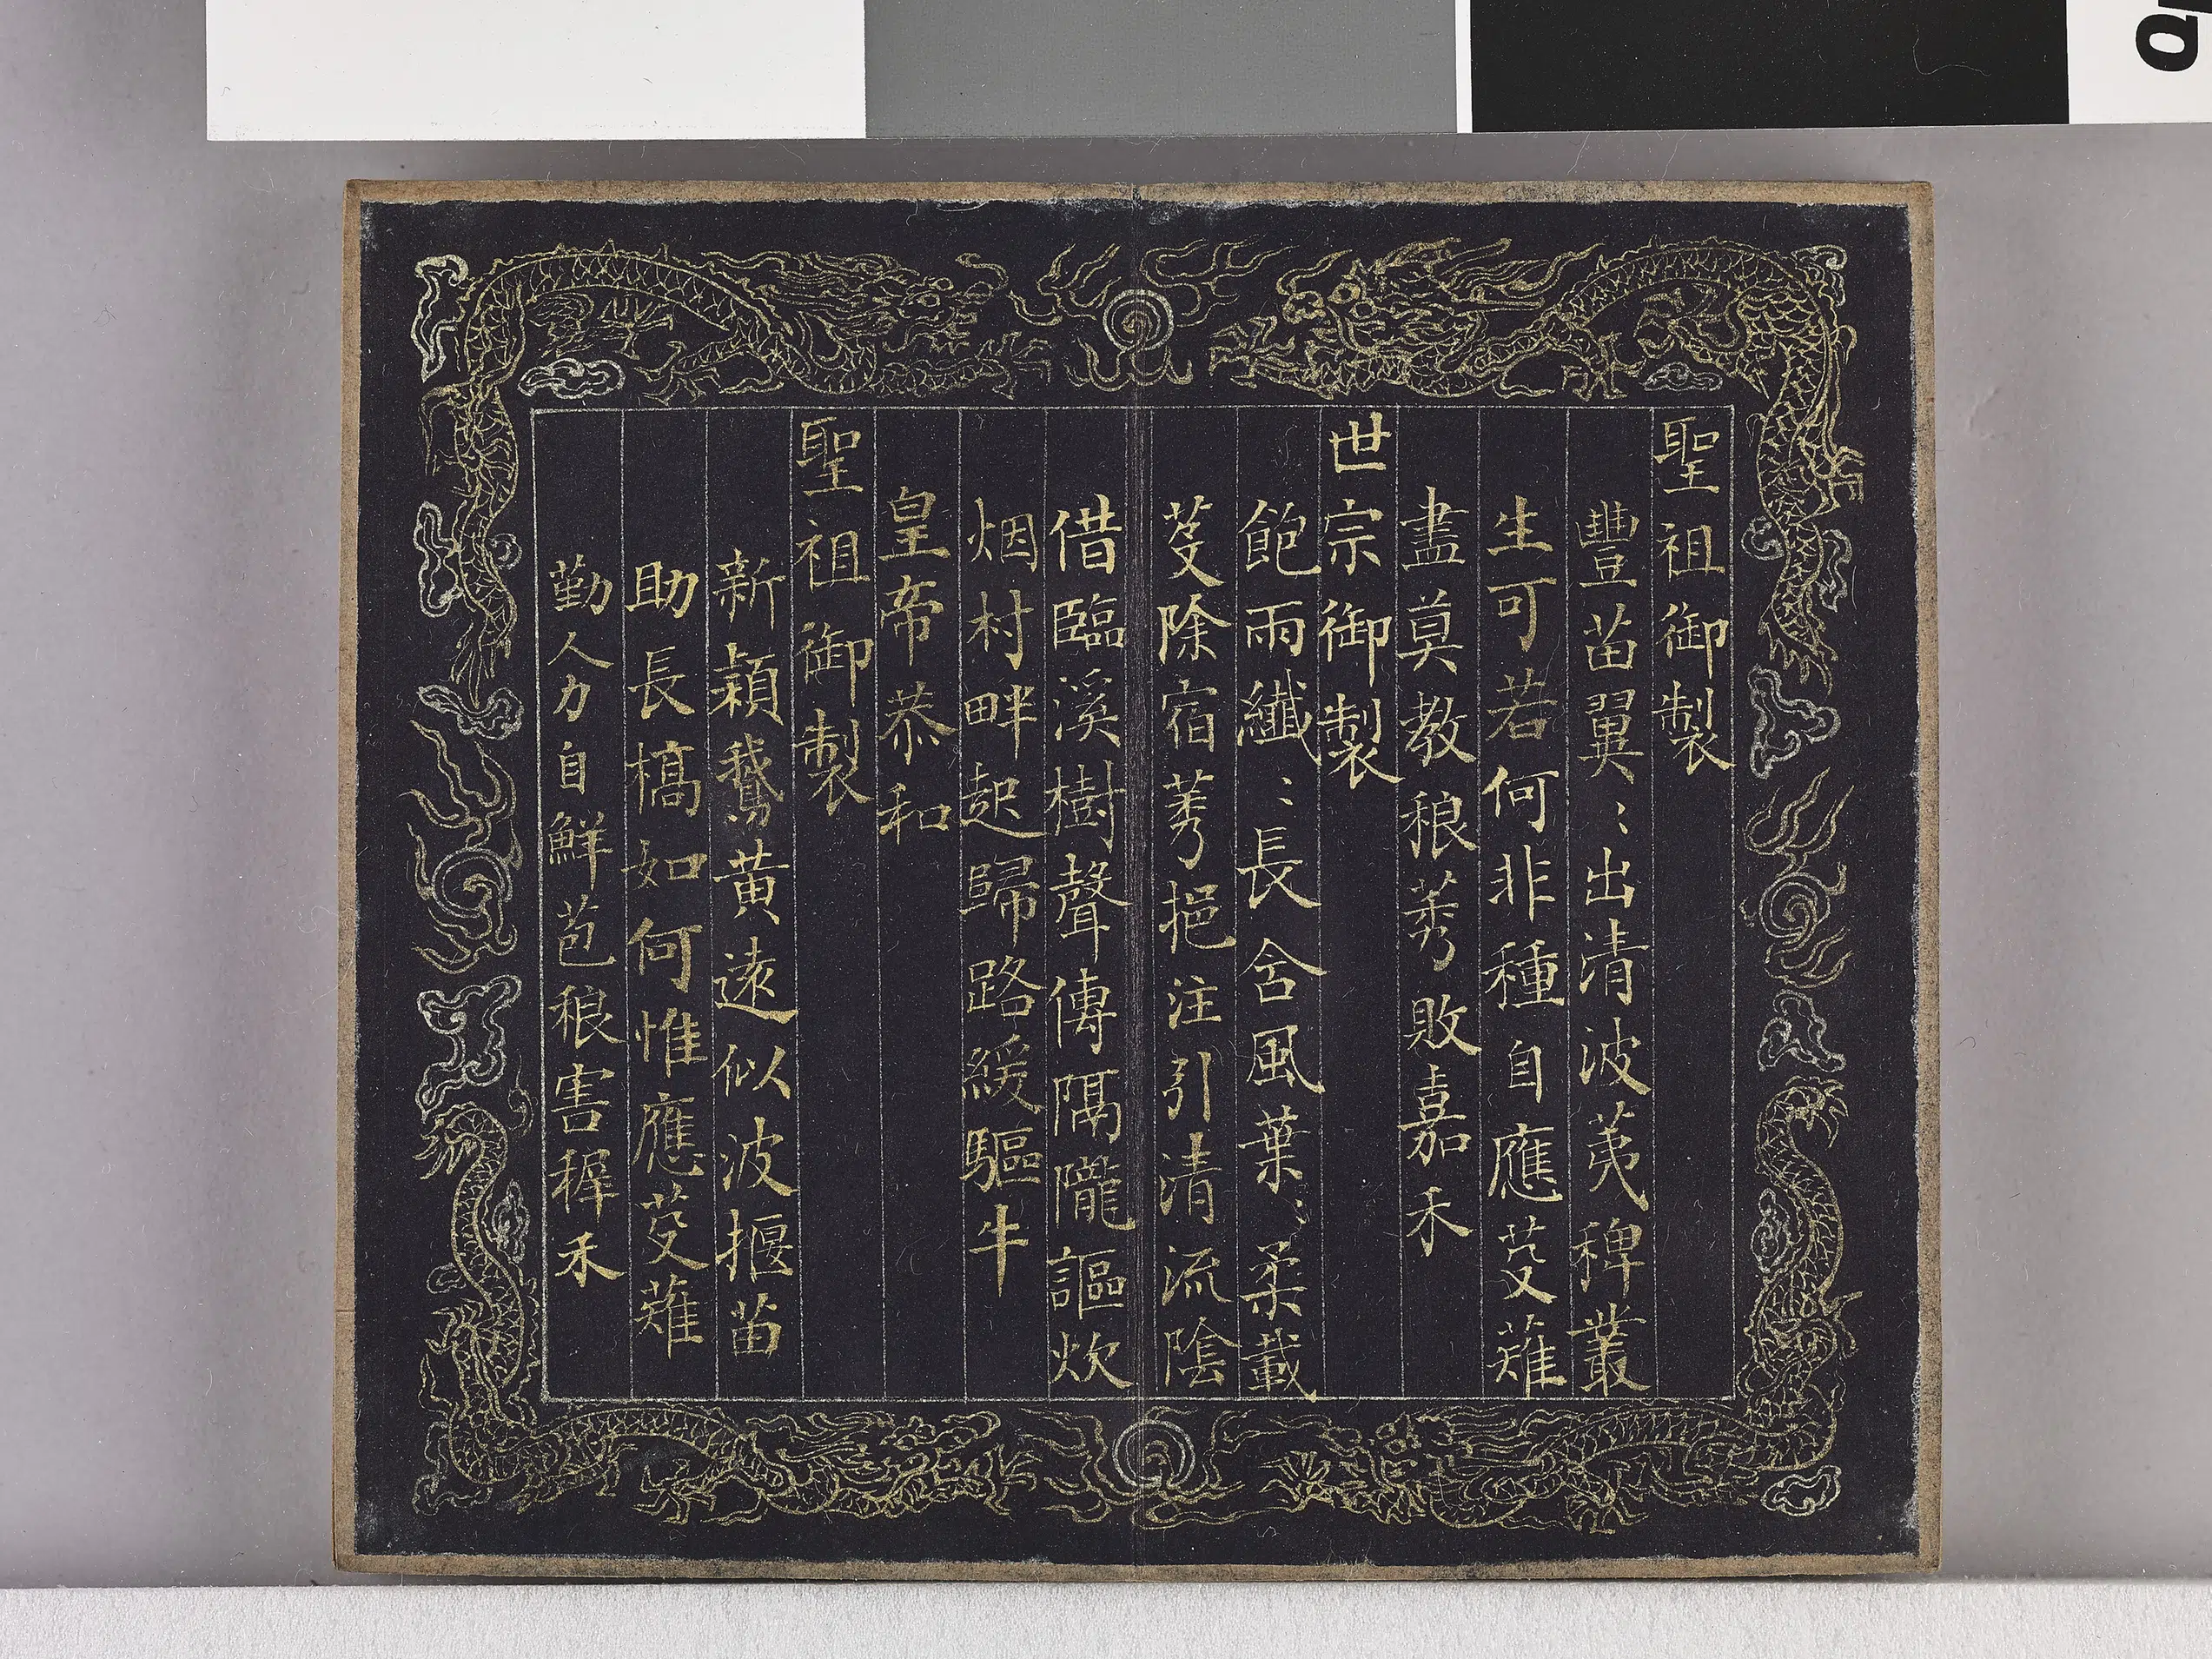 聖祖御製
豐苗翼〻出清波荑稗叢
生可若何非種自應芟薙
盡莫教稂莠敗嘉禾
世宗御製
飽雨纖〻長含風葉〻柔載
芟除宿莠挹注引清流陰
借臨溪樹聲傳隔隴謳炊
烟村畔起歸路緩驅牛
皇帝恭和
聖祖御製
新穎鵝黃遠似波揠苗
助長槁如何惟應芟薙
勤人力自鮮苞稂害稺禾